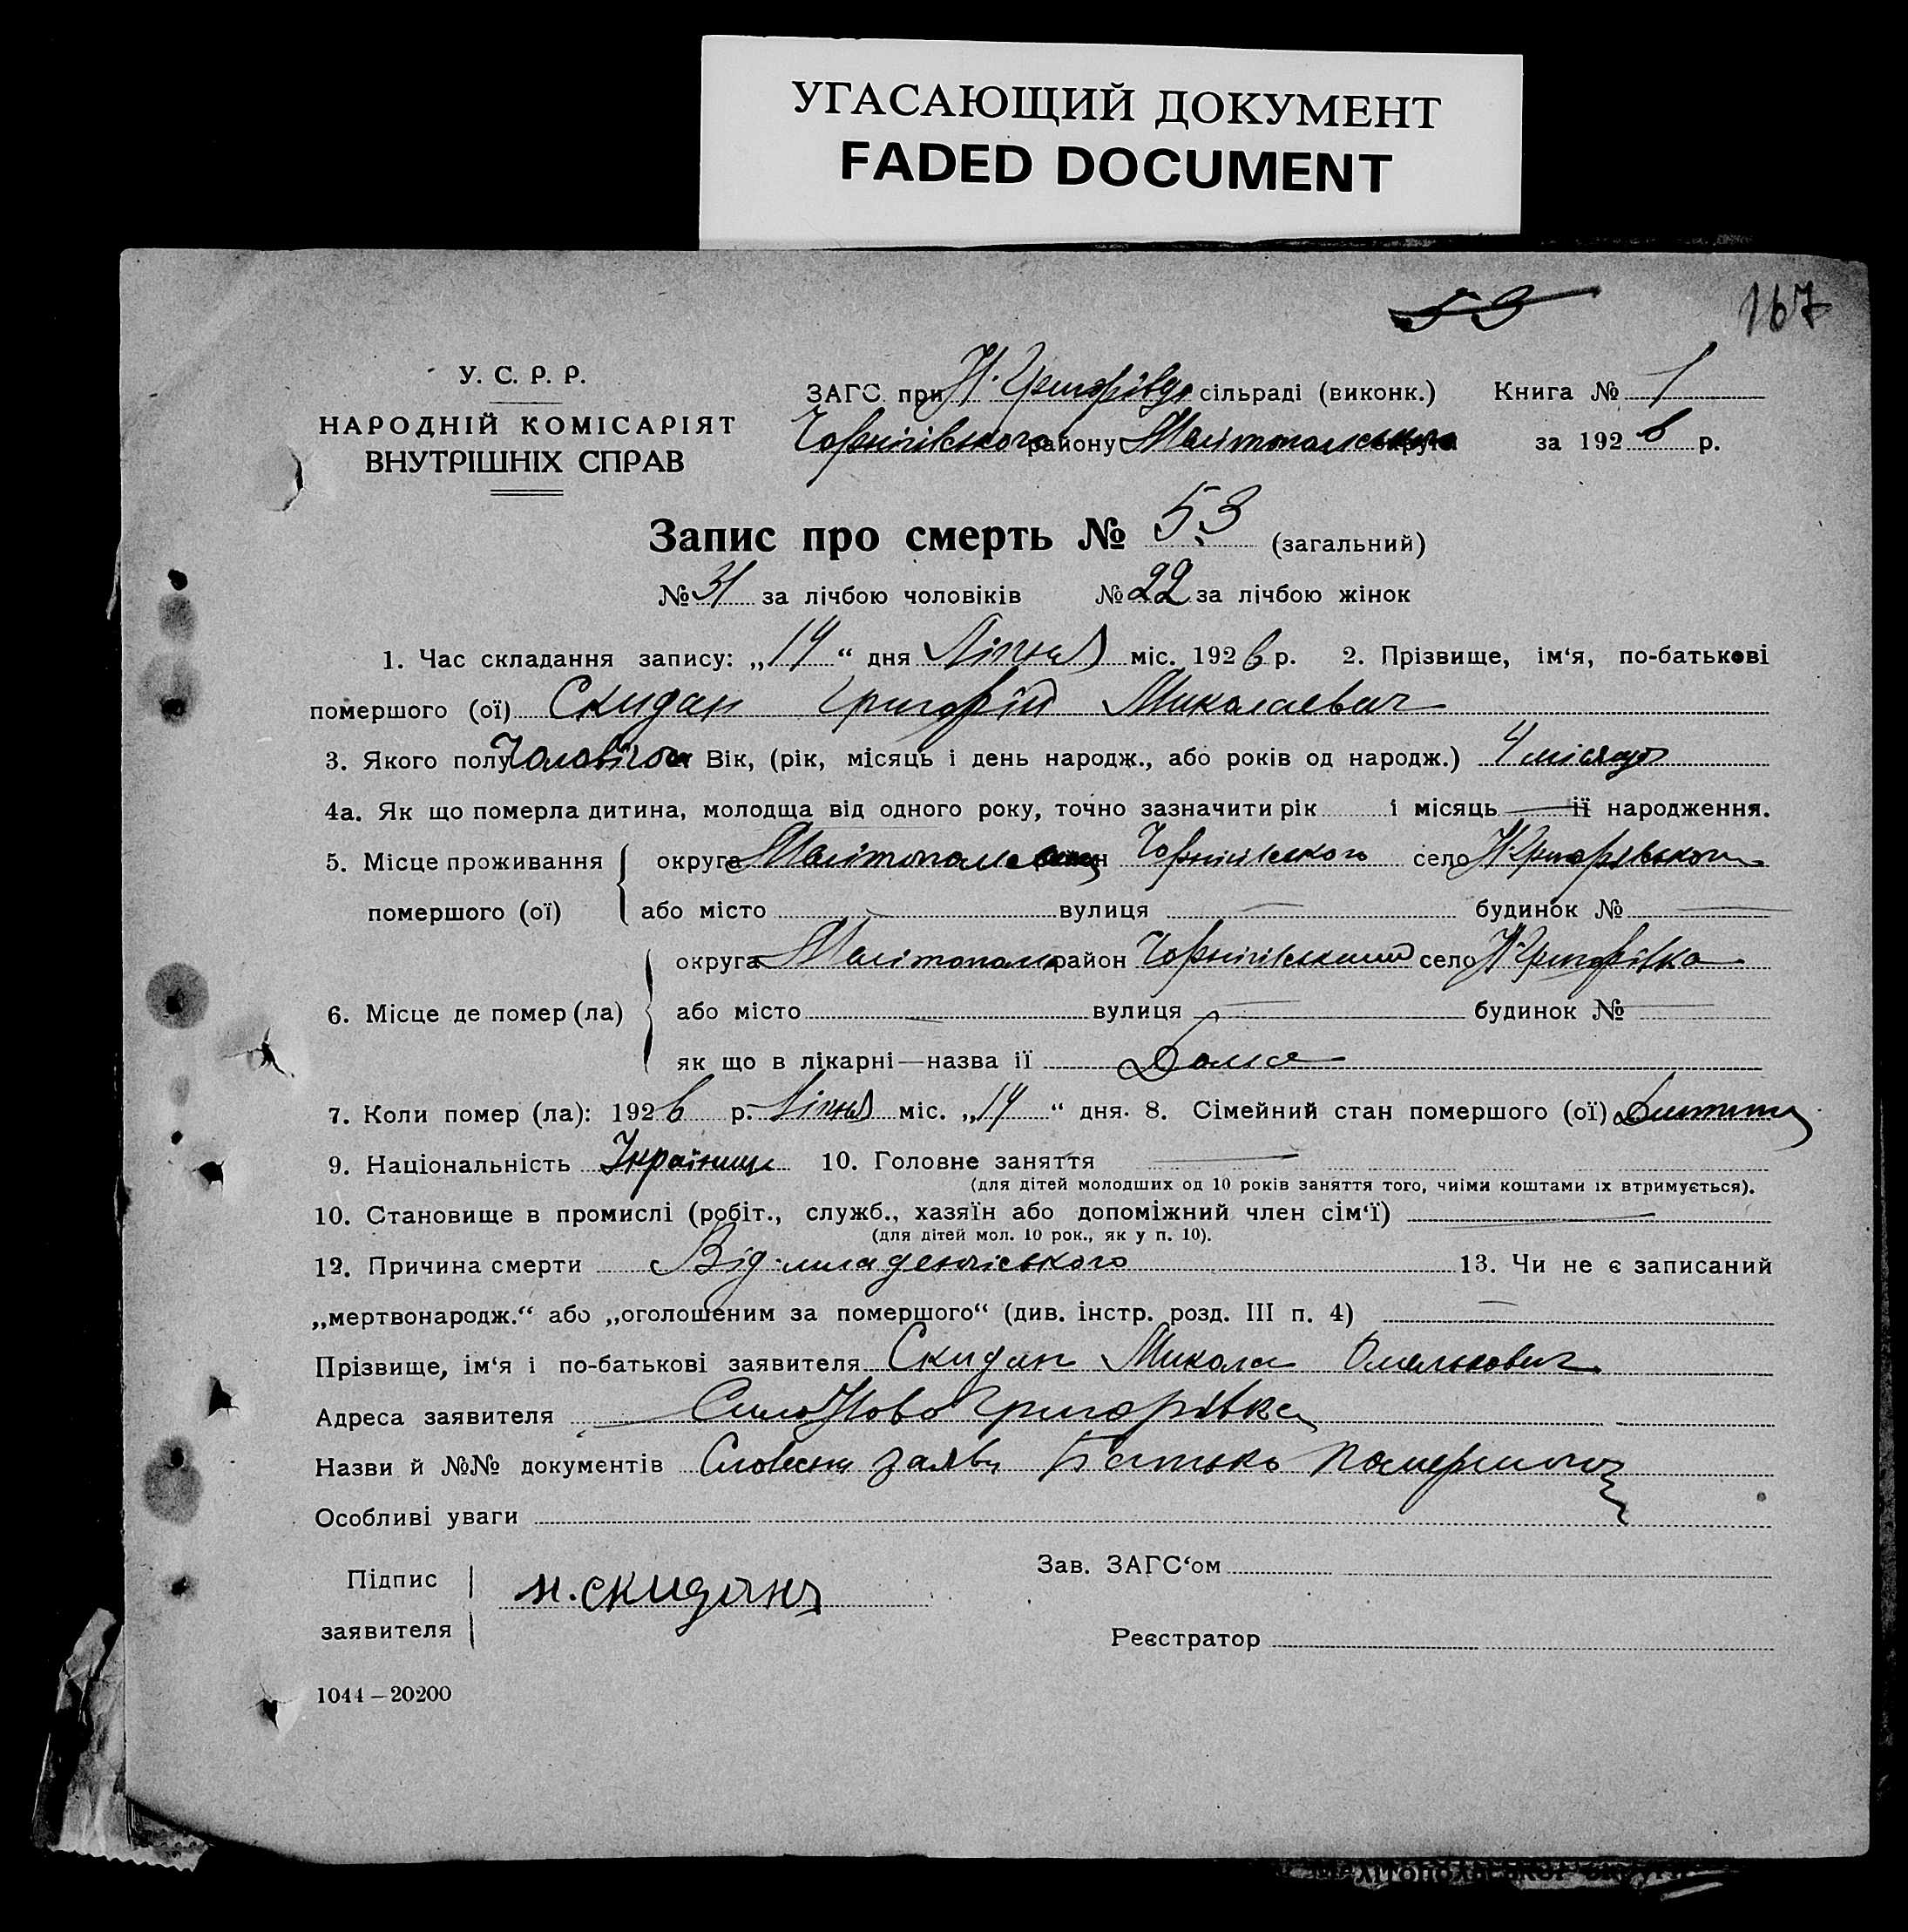 УГАСАЮЩИЙ ДОКУМЕНТ
FADED DOCUMENT
53 167
У. С. Р. Р.
НАРОДНІЙ КОМІСАРІЯТ
ВНУТРІШНІХ СПРАВ
ЗАГС при Н. Григорівці сільраді (виконк.) Книга № 1
Чорнігівського району Мелітопольської округи за 1926 р.
Запис про смерть № 53 (загальний)
№ 31 за лічбою чоловіків № 22 за лічбою жінок
1. Час складання запису: „14“ дня Липня міс. 1926 р. 2. Прізвище, ім‘я, по-батькові
помершого (ої) Скидан Григорій Миколаевич
3. Якого полу Чоловічого Вік, (рік, місяць і день народж., або років од народж.) 4 місяця
4а. Як що померла дитина, молодща від одного року, точно зазначити рік і місяць — ії народження.
5. Місце проживання округа район Чорнігівського село Н Григорівського
помершого (ої) або місто вулиця — будинок № —
округа Мелітополь район Чорнігівський село Н Григорівка
6. Місце де помер (ла) або місто — вулиця — будинок № —
як що в лікарні—назва ії Дома
7. Коли помер (ла): 1926 р. Липня міс. „14“ дня. 8. Сімейний стан помершого (ої) Дитина
9. Національність Українець 10. Головне заняття —
(для дітей молодших од 10 років заняття того, чиїми коштами їх втримується).
10. Становище в промислі (робіт., служб., хазяїн або допоміжний член сім‘ї) —
(для дітей мол. 10 рок., як у п. 10).
12. Причина смерти Від младенчіського 13. Чи не є записаний
„мертвонародж.“ або „оголошеним за помершого“ (див. інстр. розд. III п. 4) —
Прізвище, ім‘я і по-батькові заявителя Скидан Микола Омелькович
Адреса заявителя Село Ново Григорівка
Назви й №№ документів Словесна заява Батько Помершого
Особливі уваги
Зав. ЗАГС‘ом
Підпис
заявителя Н. Скидан
Реєстратор
1044 – 20200